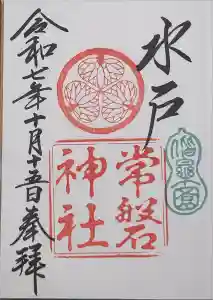 水戸
常磐
神社
令和七年十月十五日奉拝